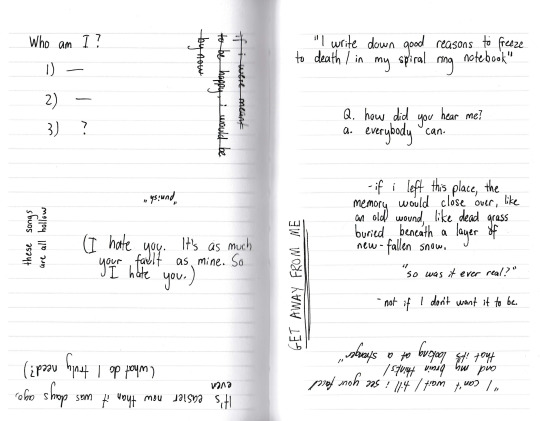 Who am I?
1) —
2) —
3) ?
if i were meant
to be happy, i would be
by now
"punish"
these songs
are all hollow
(I hate you. It's as much
your fault as mine. So
I hate you.)
It's easier now than it was days ago.
even
(what do I truly need?)
"I write down good reasons to freeze
to death / in my spiral ring notebook"
Q. how did you hear me?
a. everybody can.
- if i left this place, the
memory would close over, like
an old wound, like dead grass
buried beneath a layer of
new-fallen snow.
"so was it ever real?"
- not if I don't want it to be.
GET AWAY FROM ME
"I can't wait / till i see your face /
and my brain thinks /
that it's looking at a stranger"